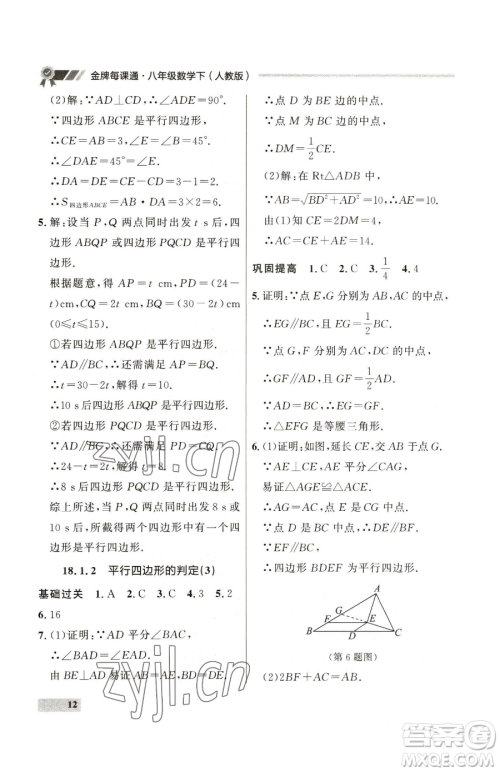 金牌每课通·八年级数学下（人教版）
(2)解：∵AD⊥CD，∴∠ADC=90°.
∵四边形 ABCE 是平行四边形，
∴CE=AB=3，∠E=∠B=45°.
∴∠DAE=45°=∠E.
∴DA=DE=CD-CE=6-3=3.
∴S四边形ABCE=AB·DA=3×3=9.
5.解：设当 P，Q 两点同时出发 t s后，四
边形 ABQP 或四边形 PQCD 是平行四
边形.
根据题意，得 AP=t cm，PD=(24-
t)cm，CQ=2t cm，BQ=(30-2t)cm
(0≤t≤15).
①若四边形 ABQP 是平行四边形，
∵AD∥BC，∴还需满足 AP=BQ.
∴t=30-2t，解得 t=10.
∴10 s后四边形 ABQP 是平行四边形.
②若四边形 PQCD 是平行四边形，
∵AD∥BC，∴还需满足 PD=CQ.
∴24-t=2t，解得 t=8.
∴8 s后四边形 PQCD 是平行四边形.
综上所述，当 P，Q 两点同时出发 8 s或
10 s后，所截得两个四边形中有一个四
边形为平行四边形.
18.1.2 平行四边形的判定(3)
基础过关 1.A 2.C 3.C 4.3 5.2
6.16
7.(1)证明：∵AD 平分∠BAC，
∴∠BAD=∠EAD.
由 BE⊥AD 易证 AB=AE，BD=DE，
∴点 D 为 BE 的中点.
∵点 M 为 BC 的中点，
∴DM=1/2CE.
(2)解：在 Rt△ADB 中，
∵AB=√(BD²+AD²)=10，
由(1)知 CE=2DM=4，
∴AC=AE+CE=14.
巩固提高 1.C 2.C 3.1/4 4.4
5.证明：∵点 E，G 分别为 AB，AC 的中点，
∴EG∥BC，EG=1/2BC.
∵点 G，F 分别为 AC，CD 的中点，
∴GF∥AD，GF=1/2AD.
∵AD=BC，∴EG=GF.
∴△EFG 是等腰三角形.
6.(1)证明：如图，延长 CE，交 AB 于点 G.
∵AE⊥CE，AE 平分∠CAG，
易证△AGE≌△ACE.
∴AG=AC，GE=CE.
∵BD=CD，∴DE∥BF.
∵EF∥BC，
∴四边形 BDEF 为平行四边形.
A
G
F
E
B
D
C
（第6题图）
(2)2BF+AC=AB.
12
zyjl.cn
zyjl.cn